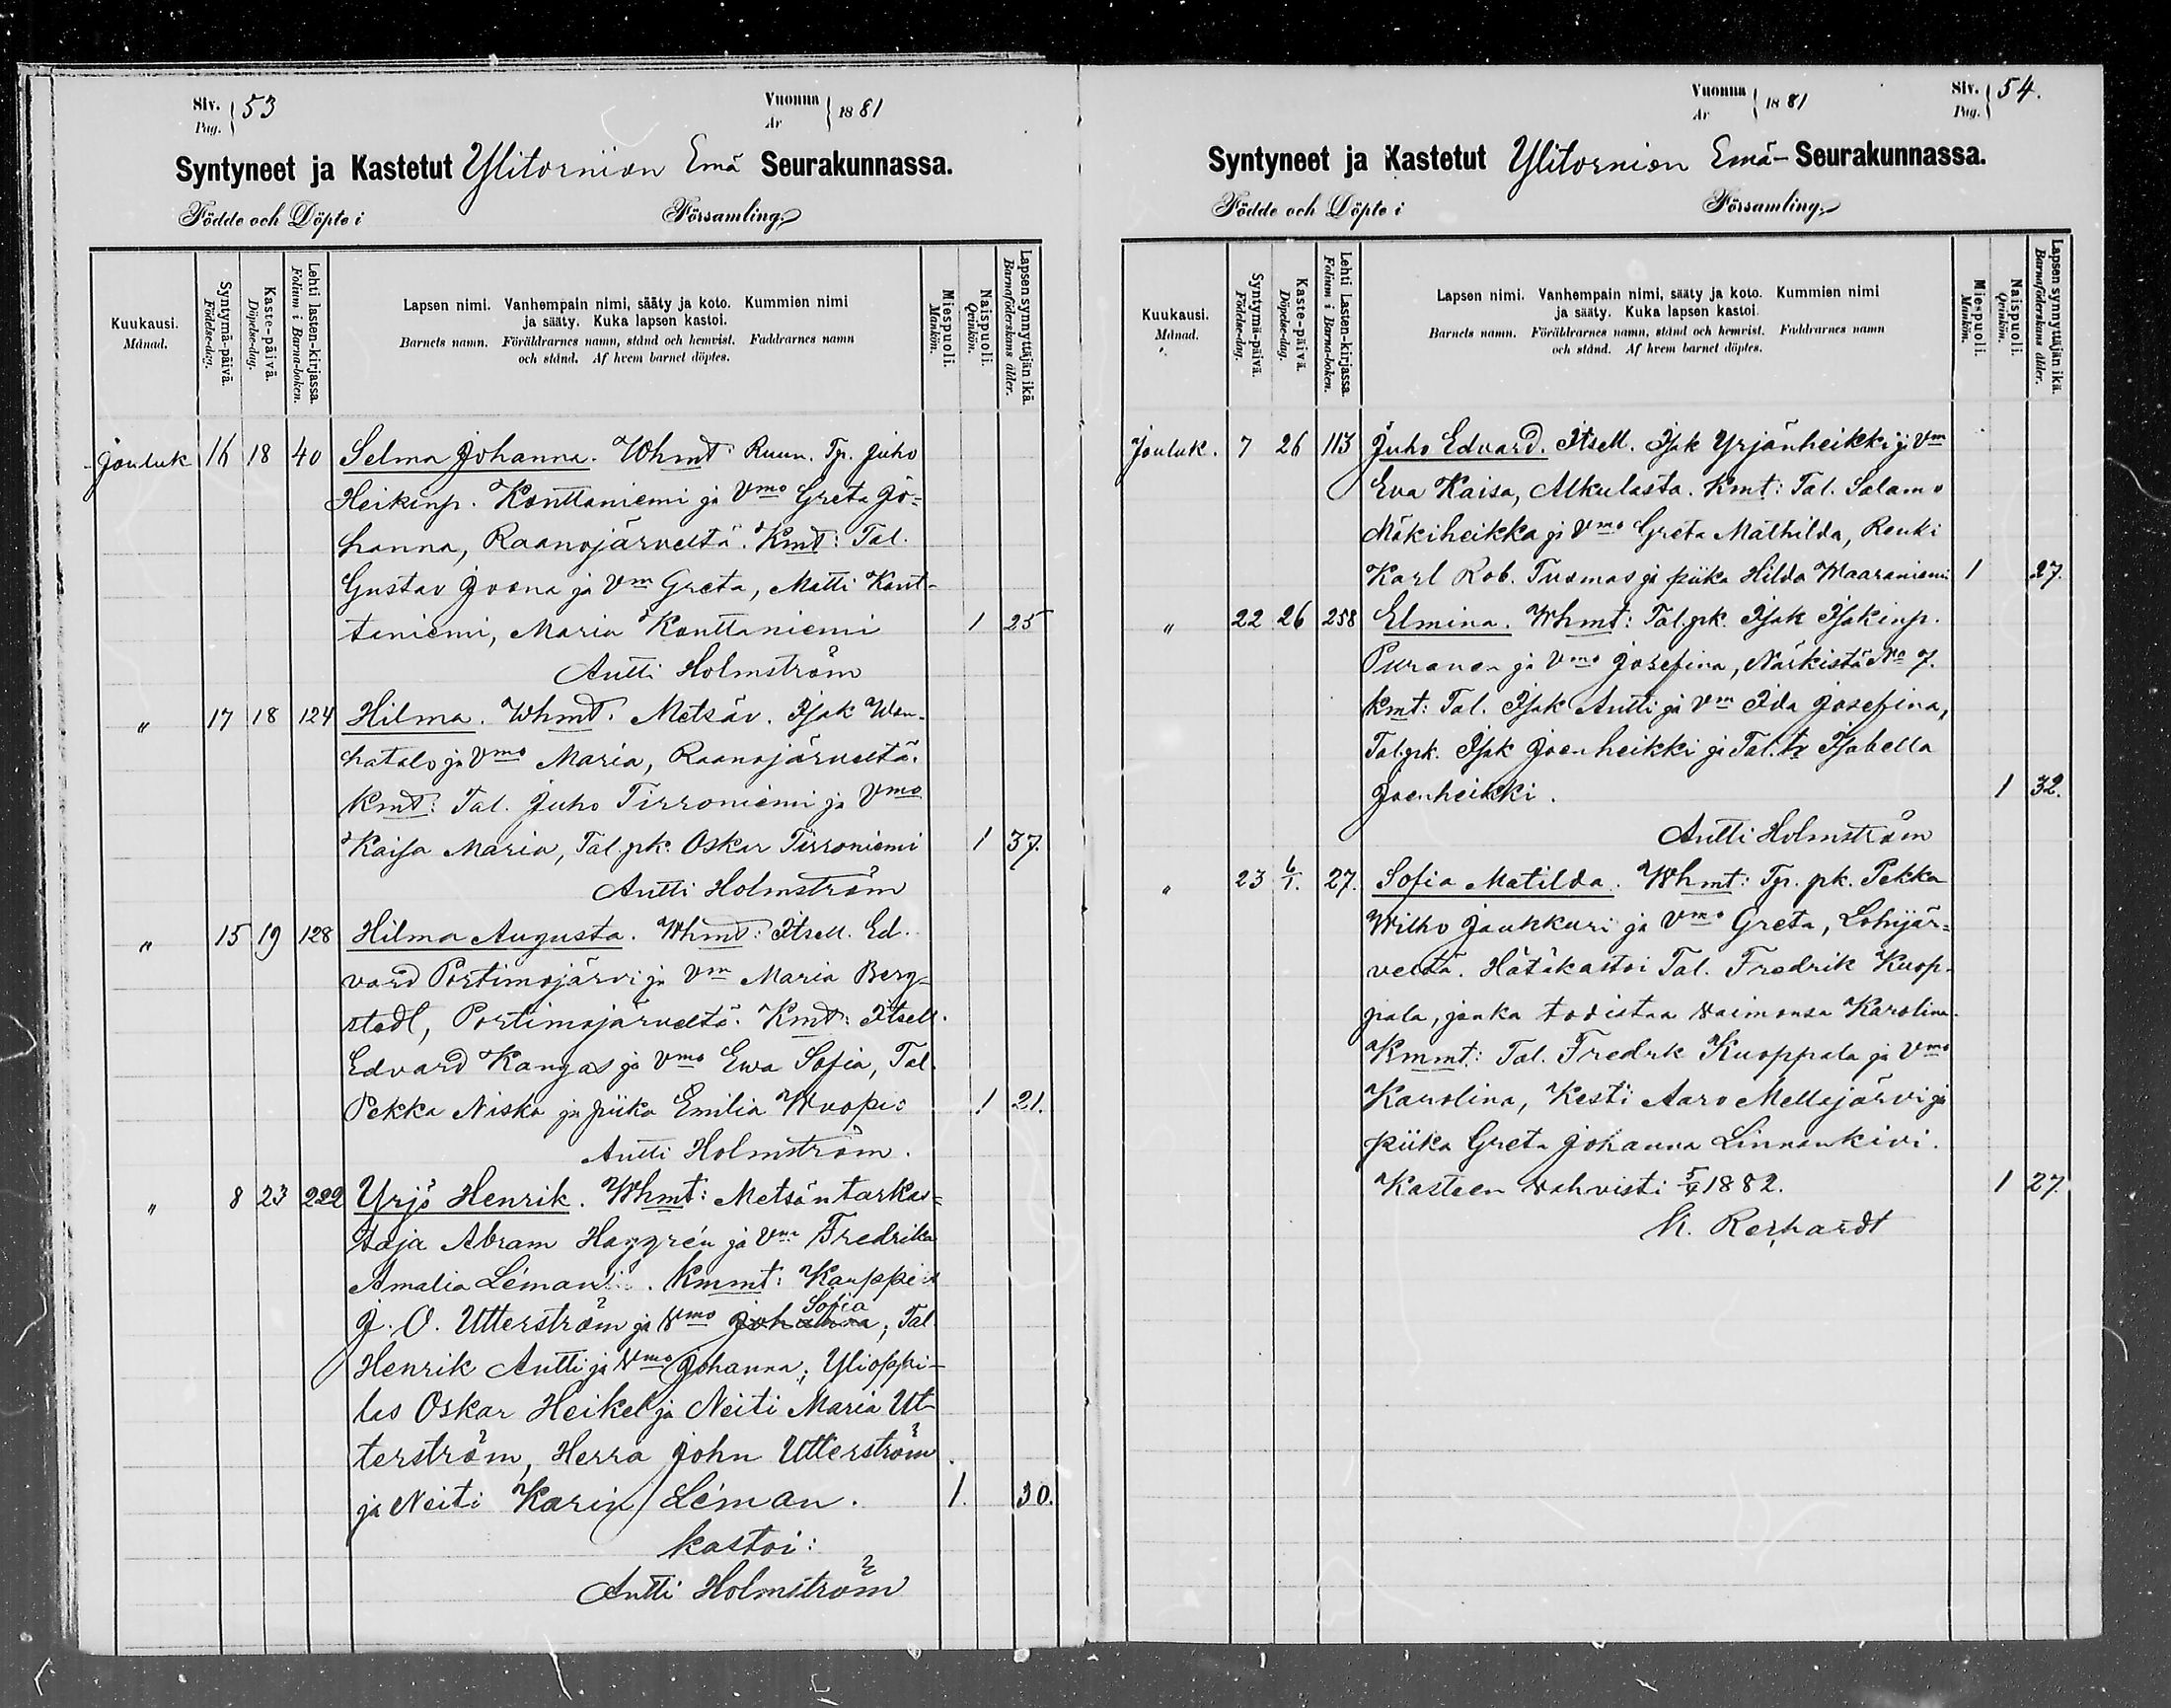 Siv. 53
Pag.
Vuonna 1881
År
Syntyneet ja Kastetut Ylitornion Emä Seurakunnassa.
Födde och Döpte i Församling.
Kuukausi.
Månad.
Syntymä-päivä.
Födelse-dag.
Kaste-päivä.
Döpelse-dag.
Lehti lasten-kirjassa.
Folium i Barna-boken.
Lapsen nimi. Vanhempain nimi, sääty ja koto. Kummien nimi
ja sääty. Kuka lapsen kastoi.
Barnets namn. Föräldrarnes namn, stånd och hemvist. Faddrarnes namn
och stånd. Af hvem barnet döptes.
Miespuoli.
Mankön.
Naispuoli.
Qvinkön.
Lapsen synnyttäjän ikä.
Barnaföderskans ålder.
Jouluk 16 18 40 Selma Johanna. Whmt: Ruun. Tp. Juho
Heikinp. Konttaniemi ja Vmo Greta Jo-
hanna, Raanojärveltä. Kmt: Tal.
Gustav Joona ja Vm Greta, Matti Kont-
taniemi, Maria Konttaniemi 1 25
Antti Holmström
" 17 18 124 Hilma. Whmt. Metsäv. Isak Wan-
hatalo ja Vmo Maria, Raanojärveltä.
Kmt: Tal. Juho Tirroniemi ja Vmo
Kaisa Maria, Tal. pk. Oskar Tirroniemi 1 37.
Antti Holmström
" 15 19 128 Hilma Augusta. Whmt: Itsell. Ed-
vard Portimojärvi ja Vm Maria Berg-
stedt, Portimojärveltä. Kmt: Itsell.
Edvard Kangas ja Vmo Ewa Sofia, Tal.
Pekka Niska ja piika Emilia Wuopio 1 21.
Antti Holmström.
" 8 23 222 Yrjö Henrik. Whmt: Metsäntarkas-
taja Abram Haggrén ja Vmo Fredrika
Amalia Léman. Kmmt: Kauppias
J. O. Utterström ja Vmo Johanna Sofia, Tal.
Henrik Antti ja Vmo Johanna; Ylioppi-
las Oskar Heikel ja Neiti Maria Ut-
terström, Herra John Utterström
ja Neiti Karin Léman. 1. 30.
kastoi:
Antti Holmström
Vuonna 1881
År
Siv. 54.
Pag.
Syntyneet ja Kastetut Ylitornion Emä- Seurakunnassa.
Födde och Döpte i Församling.
Kuukausi.
Månad.
Syntymä-päivä.
Födelse-dag.
Kaste-päivä.
Döpelse-dag.
Lehti Lasten-kirjassa.
Folium i Barna-boken.
Lapsen nimi. Vanhempain nimi, sääty ja koto. Kummien nimi
ja sääty. Kuka lapsen kastoi.
Barnets namn. Föräldrarnes namn, stånd och hemvist. Faddrarnes namn
och stånd. Af hvem barnet döptes.
Miespuoli.
Mankön.
Naispuoli.
Qvinkön.
Lapsen synnyttäjän ikä.
Barnaföderskans ålder.
Jouluk. 7 26 113 Juho Edvard. Itsell. Isak Yrjänheikki ja Vm
Eva Kaisa, Alkulasta. Kmt: Tal. Salamo
Mäkiheikka ja Vmo Greta Mathilda, Renki
Karl Rob. Tuomas ja piika Hilda Waaraniemi 1 27.
" 22 26 258 Elmina. Whmt: Tal. pk. Isak Isakinp.
Puranen ja Vmo Josefina, Närkistä No 7.
Kmt: Tal. Isak Antti ja Vm Ida Josefina,
Tal. pk. Isak Joenheikki ja Tal. tr Isabella
Joenheikki. 1 32.
Antti Holmström
" 23 6/1. 27. Sofia Matilda. Whmt: Tp. pk. Pekka
Wilho Jaukkuri ja Vmo Greta, Lohijär-
veltä. Hätäkastoi Tal. Fredrik Kuop-
pala, jonka todistaa vaimonsa Karolina.
Kmmt: Tal. Fredrk Kuoppala ja Vmo
Karolina, Kesti Aaro Mellajärvi ja
piika Greta Johanna Linnankivi.
Kasteen vahvisti 5/4 1882. 1 27.
K. Rerhardt